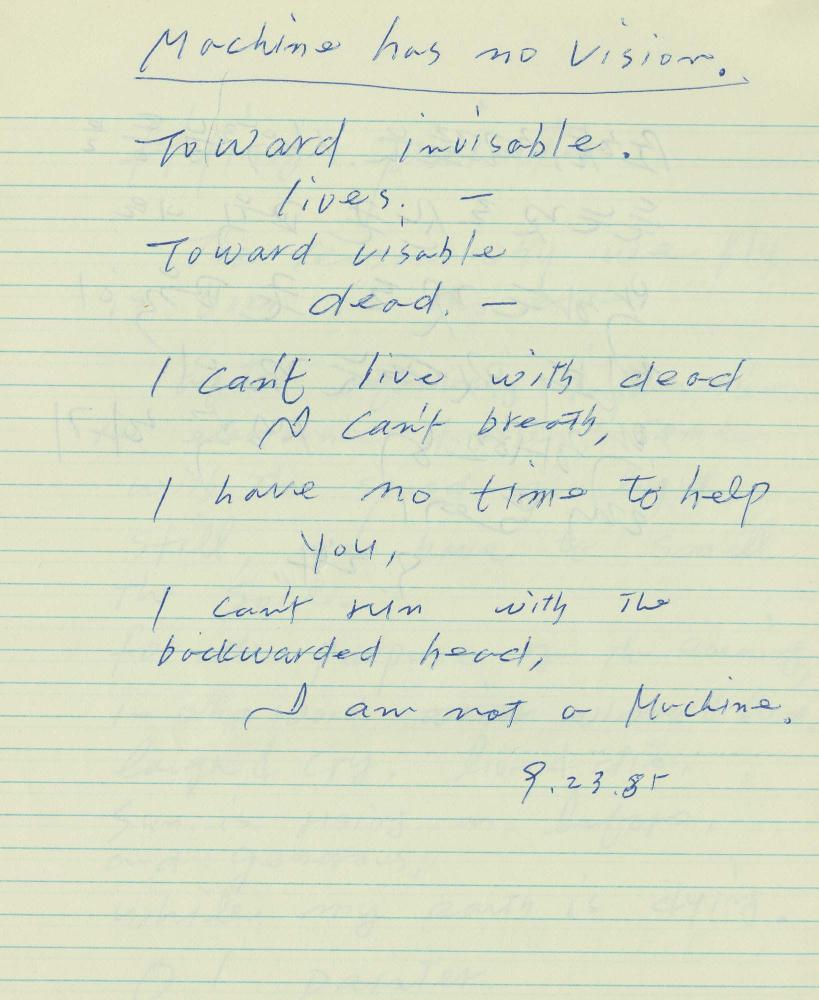 Machine has no Vision.
Toward invisable.
lives. —
Toward visable
dead. —
I can't live with dead
I can't breath,
I have no time to help
you,
I can't run with the
backwarded head,
I am not a Machine.
9.23.85